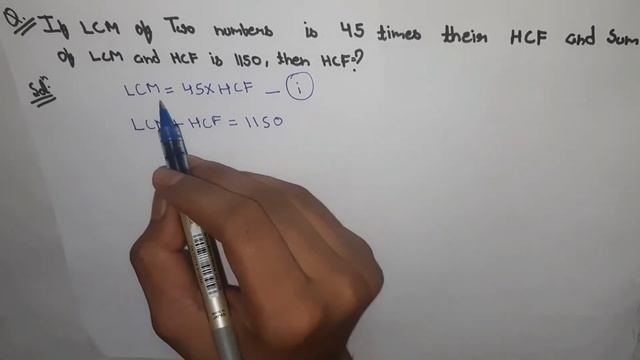 Q. If LCM of Two numbers is 45 times their HCF and Sum
of LCM and HCF is 1150, then HCF=?
Sol:
LCM = 45×HCF — (i)
LCM + HCF = 1150